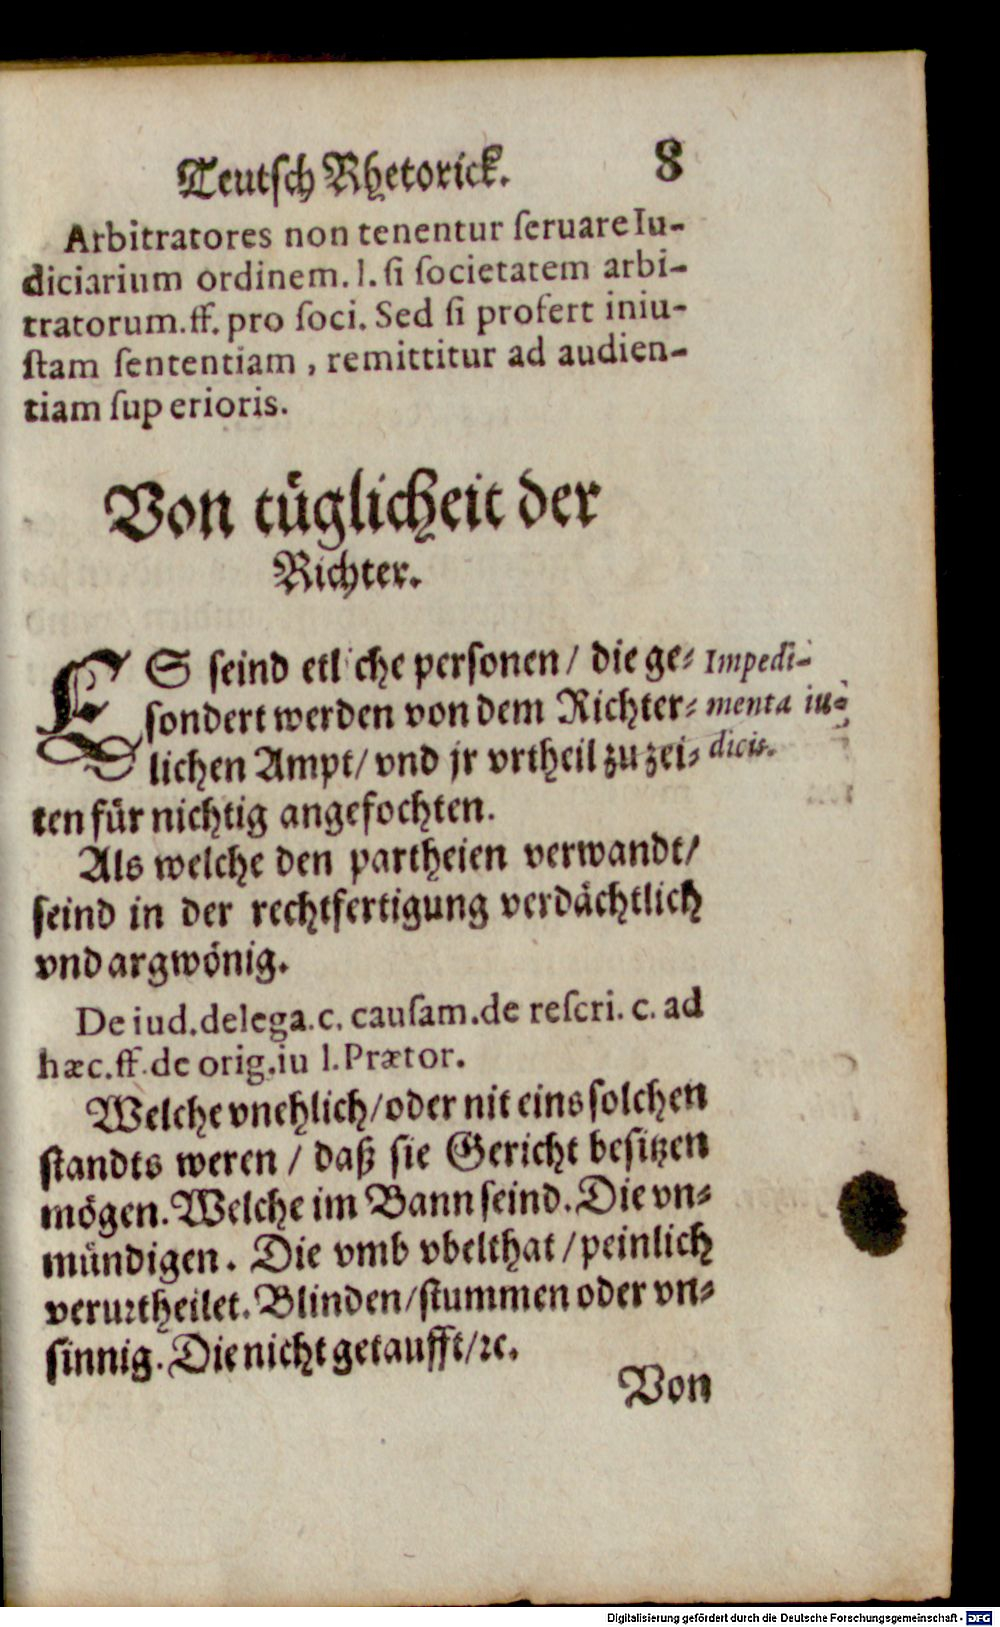 Teutsch Rhetorick. 8
Arbitratores non tenentur ſeruare Iu-
diciarium ordinem. l. ſi ſocietatem arbi-
tratorum. ff. pro ſoci. Sed ſi profert iniu-
ſtam ſententiam , remittitur ad audien-
tiam ſup erioris.
Von tüglicheit der
Richter.
ES ſeind etl che perſonen / die ge-
ſondert werden von dem Richter-
lichen Ampt / vnd jr vrtheil zu zei-
ten für nichtig angefochten.
Impedi-
menta iu-
dicis.
Als welche den partheien verwandt /
ſeind in der rechtfertigung verdächtlich
vnd argwönig.
De iud. delega. c. cauſam. de reſcri. c. ad
hæc. ff. de orig. iu l. Prætor.
Welche vnehlich / oder nit eins ſolchen
ſtandts weren / daß ſie Gericht beſitzen
mögen. Welche im Bann ſeind. Die vn-
mündigen. Die vmb vbelthat / peinlich
verurtheilet. Blinden / ſtummen oder vn-
ſinnig. Die nicht getaufft / ꝛc.
Von
Digitalisierung gefördert durch die Deutsche Forschungsgemeinschaft - DFG